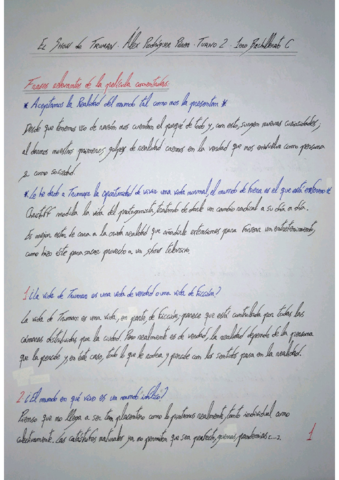 EL SHOW de TRUMAN Álex Rodríguez TURNO 2 1ero Bachillerato C
Frases relevantes de la película comentadas:
* Aceptamos la Realidad del mundo tal como nos la presentan. *
Desde que tenemos uso de razón nos cuentan el porqué de todo y, con esto, surgen nuevas curiosidades,
al darnos nuestros primeros golpes de realidad creemos en la verdad que nos como personas
y como sociedad.
* Le he dado a Truman la oportunidad de vivir una vida normal, el mundo de fuera es el que está enfermo *
la vida del protagonista, tratando de darle un cambio radical a su día a día.
Es mejor la cruda realidad que para un entretenimiento,
como hizo este proyecto a un show televisivo.
1 ¿La vida de Truman es una vida de verdad o una vida de ficción?
La vida de Truman es una vida, en parte, de ficción; parece que está controlada por todas las
cámaras distribuidas por la ciudad. Pero realmente es de verdad, la realidad depende de la persona
que la percibe y en este caso, todo lo que le rodea, y percibe con los sentidos para en la realidad.
2 ¿El mundo en que vivo es un mundo idílico?
Pienso que no llega a ser tan placentero como lo pintamos realmente, tanto individual como
colectivamente. Las catástrofes naturales ya no permiten que sea perfecto, guerras, pandemias...
1